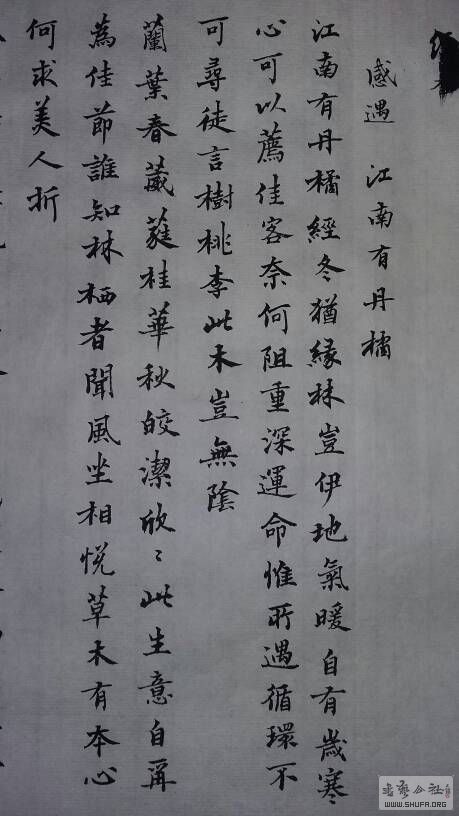 感遇 江南有丹橘
江南有丹橘經冬猶緑林豈伊地氣暖自有歲寒
心可以薦佳客奈何阻重深運命惟所遇循環不
可尋徒言樹桃李此木豈無陰
蘭葉春葳蕤桂華秋皎潔欣〻此生意自爾
為佳節誰知林栖者聞風坐相悦草木有本心
何求美人折
書藝公社
WWW.SHUFA.ORG